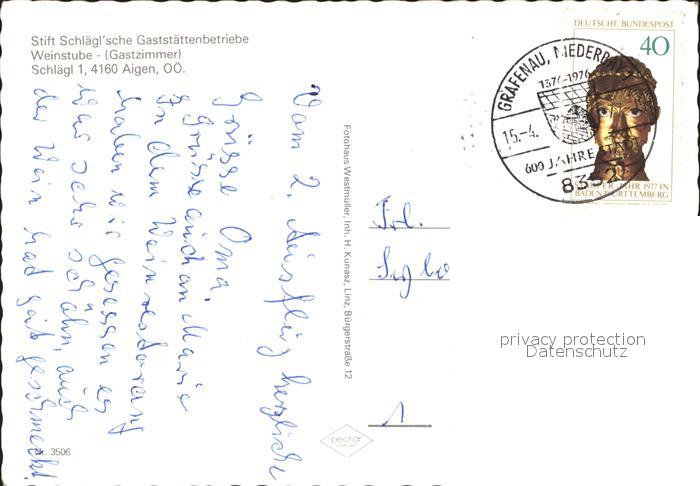 Stift Schlägl'sche Gaststättenbetriebe
Weinstube - (Gastzimmer)
Schlägl 1, 4160 Aigen, OÖ.
Vom 2. Ausflug herzliche
Grüsse Oma.
Grüsse auch an Marie
In dem Weinrestorang
haben wir gesessen es
war sehr schön, auch
der Wein had gut geschmeckt.
Nr. 3506
Fotohaus Westmüller, Inh. H. Kunasz, Linz, Bürgerstraße 12
pechar
Frl.
1
DEUTSCHE BUNDESPOST
40
STAUFER-JAHR 1977 IN
BADEN-WÜRTTEMBERG
GRAFENAU, NIEDERBAY
1376-1976
15.-4.
600 JAHRE
8352
privacy protection
Datenschutz